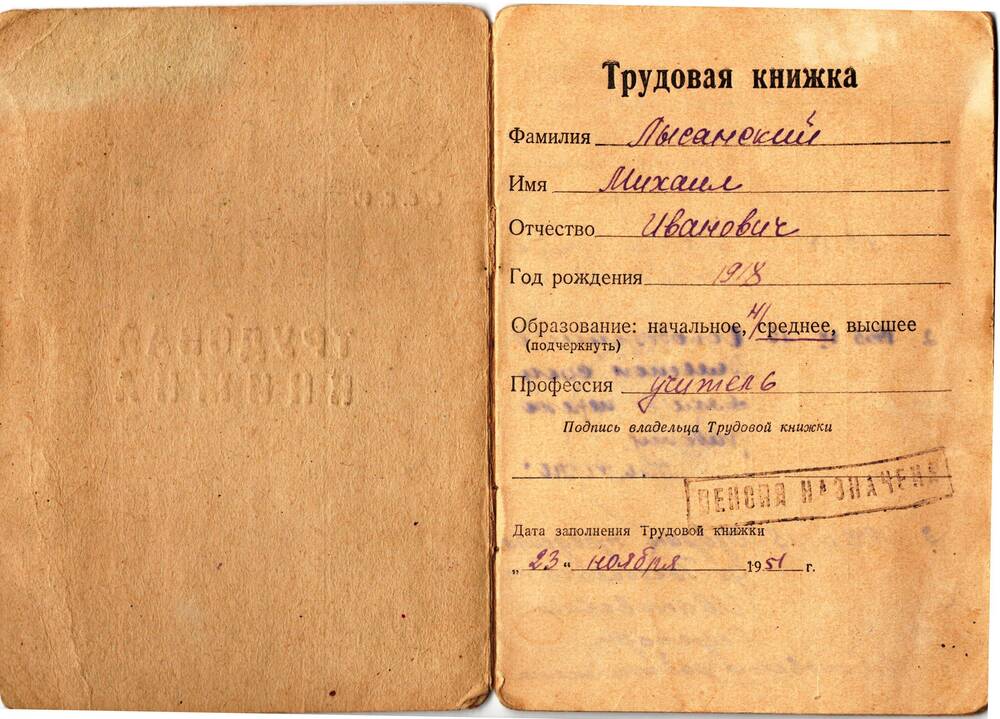 Трудовая книжка
Фамилия Лысанский
Имя Михаил
Отчество Иванович
Год рождения 1918
Образование: начальное, н/среднее, высшее
(подчеркнуть)
Профессия учитель
Подпись владельца Трудовой книжки
ПЕНСИЯ НАЗНАЧЕНА
Дата заполнения Трудовой книжки
„ 23 “ ноября 1951 г.
ТРУДОВАЯ
КНИЖКА